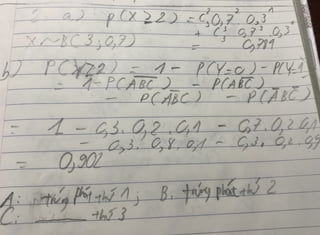 2. a) P(X ≥ 2) = C₃² 0,7² 0,3¹
+ C₃³ 0,7³ 0,3⁰
X ~ B(3; 0,7) = 0,784
b) P(Y ≥ 2) = 1 - P(Y=0) - P(Y=1
= 1 - P(A̅B̅C̅) - P(AB̅C̅)
- P(A̅BC̅) - P(A̅B̅C)
= 1 - 0,3. 0,2. 0,1 - 0,7. 0,2. 0,1
- 0,3. 0,8. 0,1 - 0,3. 0,2. 0,9
= 0,902
A: trúng phát thứ 1; B. trúng phát thứ 2
C: thứ 3